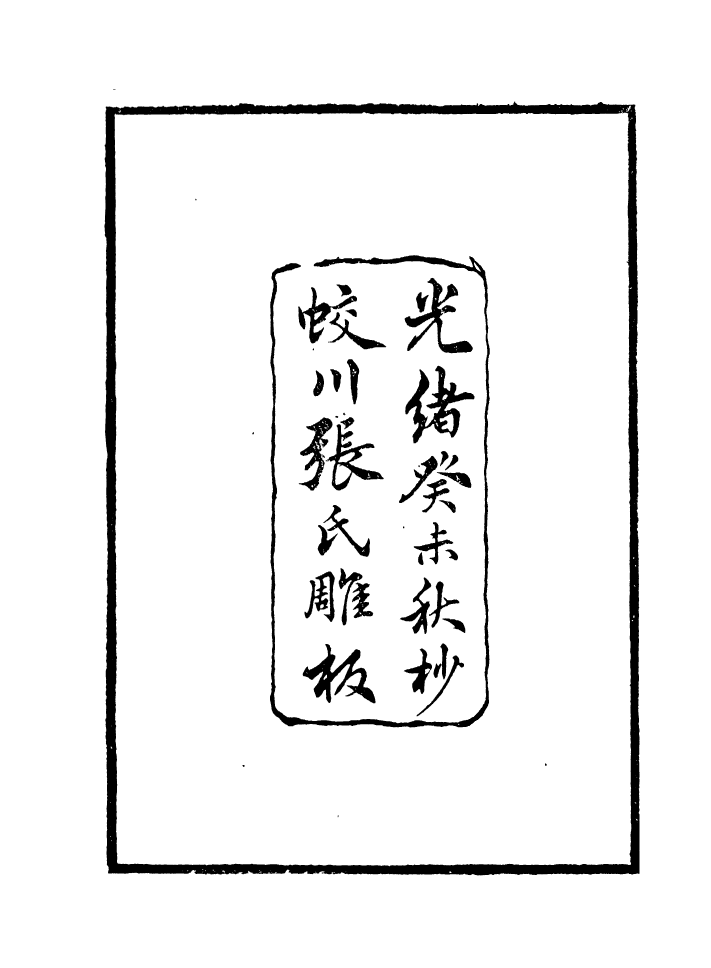 光緒癸未秋杪
蛟川張氏雕板